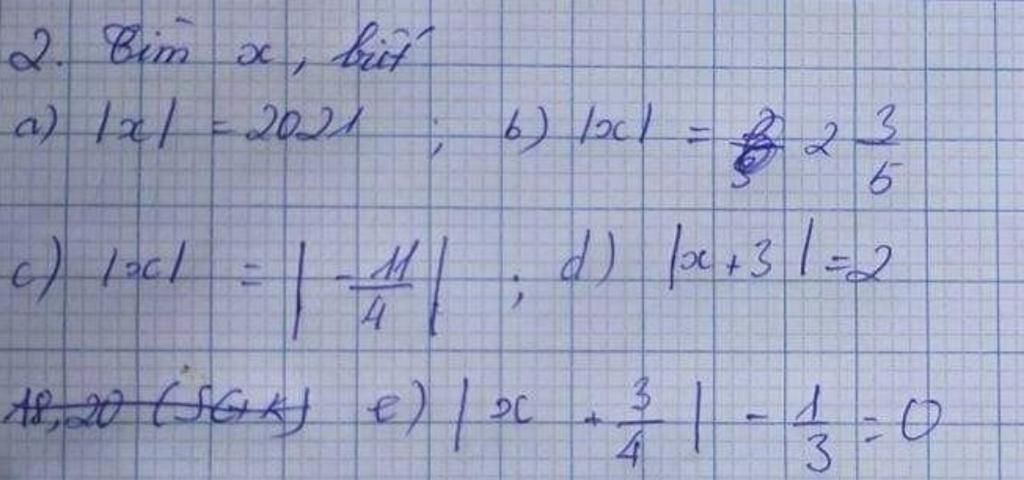 2. Tìm x, biết
a) |x| = 2021 ; b) |x| = 2 3/5
c) |x| = |-11/4| ; d) |x+3| = 2
18,20 (SGK) e) |x + 3/4| - 1/3 = 0